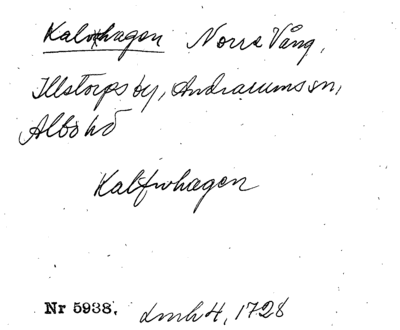 Kalvhagen Norra Vång,
Illstorps by, Andrarums sn,
Albo hd
Kalfwhagen
Nr 5938. Lmh 4, 1728